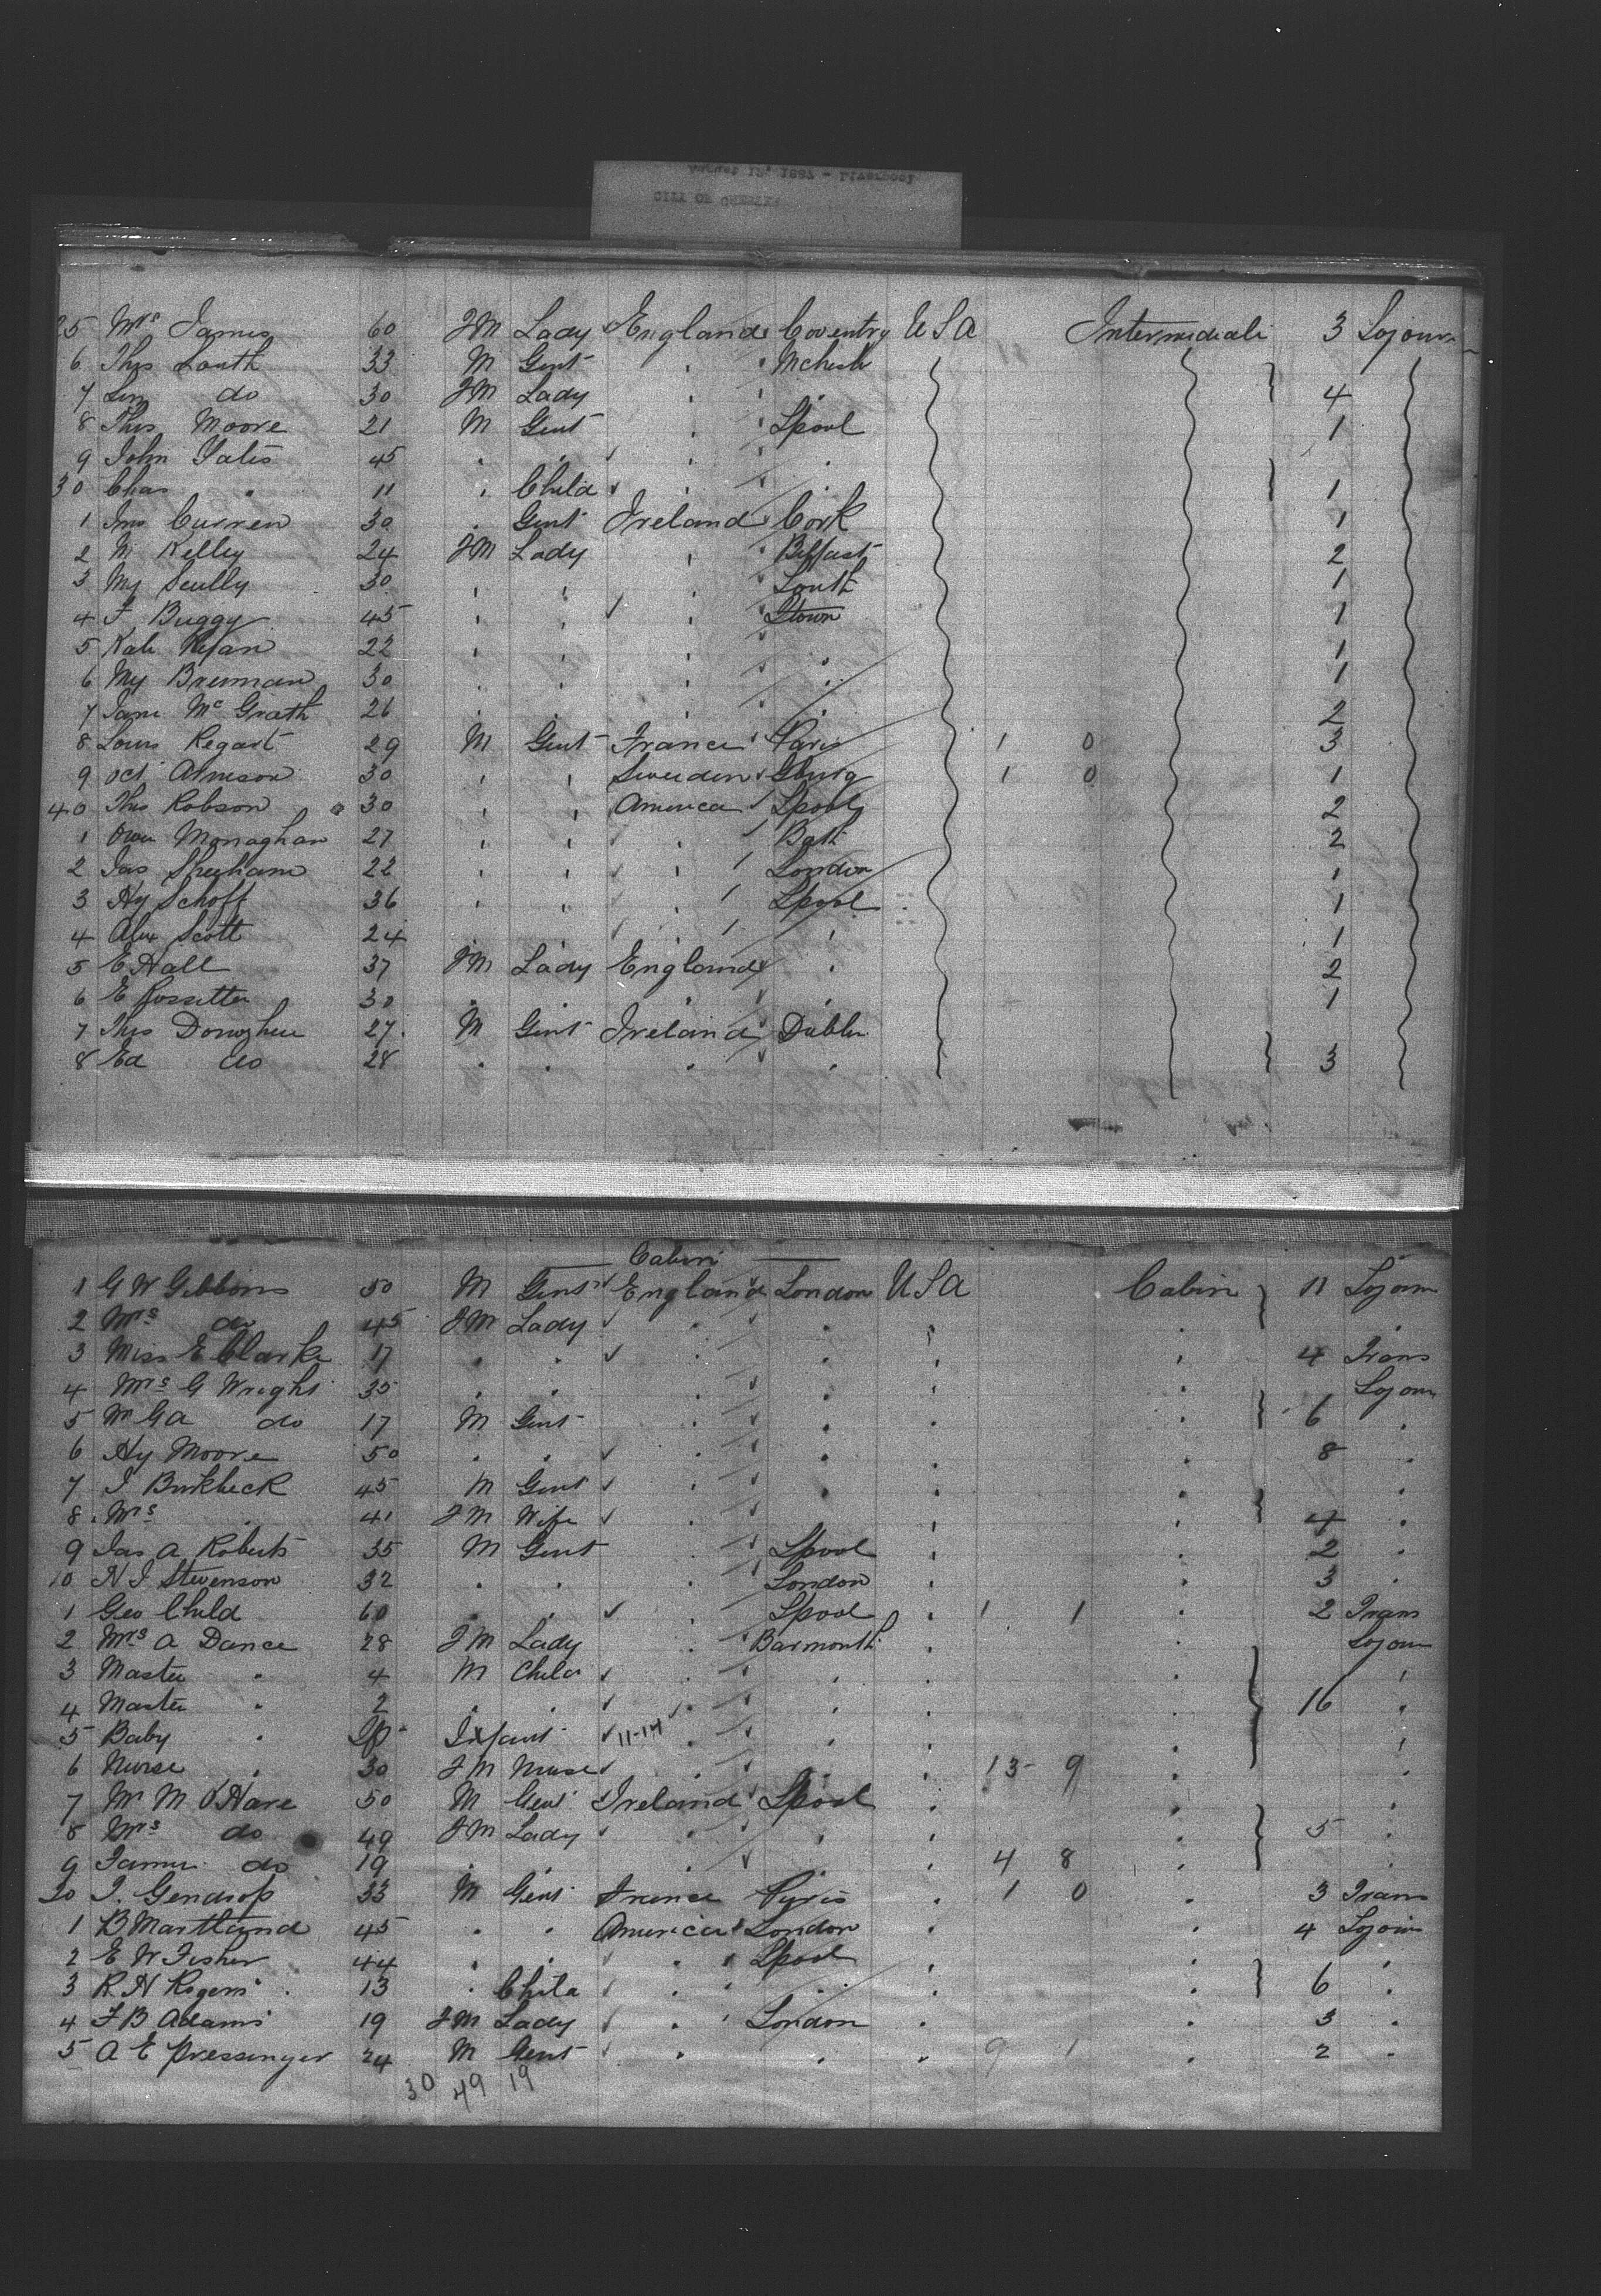 CITY OF CHESTER
August 12, 1887 - Liverpool
25 Mrs James 60 FM Lady England Coventry USA Intermediate 3 Sojourn
6 Thos South 33 M Gent " " Mchestr
7 do 30 FM Lady " " " 4
8 Thos Moore 21 M Gent " " Lpool 1
9 John Yates 45 " " " "
30 Chas " 11 " Child " " 1
1 Jno Curren 30 " Gent Ireland Cork 1
2 M Kelley 24 FM Lady " Belfast 2
3 My Scully 30 " " " Louth 1
4 F Buggy 45 " " " Qtown 1
5 Kate Ryan 22 " " " " 1
6 My Brennan 30 " " " " 1
7 Jane McGrath 26 " " " " 2
8 Louis Regart 29 M Gent France Paris 1 0 3
9 Oct 30 " " Sweden Gburg 1 0 1
40 Thos Robson 30 " " America Lpool 2
1 Owen Monaghan 27 " " " Bath 2
2 Jas 22 " " " London 1
3 Hy Schoff 36 " " " Lpool 1
4 Alex Scott 24 " " " " 1
5 E Hall 37 FM Lady England " 2
6 E Rossitter 30 " " " " 1
7 Thos Donoghue 27 M Gent Ireland Dublin
8 Ed do 28 " " " " 3
Cabin
1 G W Gibbons 50 M Gent England London USA Cabin 11 Sojourn
2 Mrs do 45 FM Lady " " " " "
3 Miss E Clarke 17 " " " " " " 4 Trans
4 Mrs G Wright 35 " " " " " " Sojourn
5 Mr GA do 17 M Gent " " " " 6 "
6 Hy Moore 50 " " " " " " 8 "
7 J Birkbeck 45 M Gent " " " " "
8 Mrs " 41 FM Wife " " " " 4 "
9 Jas A Roberts 35 M Gent " Lpool " " 2 "
10 N J Stevenson 32 " " " London " " 3 "
1 Geo Child 60 " " " Lpool " 1 1 " 2 Trans
2 Mrs A Dance 28 FM Lady " Barmouth " Sojourn
3 Master " 4 M Child " " " " "
4 Master " 2 " " " " " " 16 "
5 Baby " Inf Infant 11-14 " " " " "
6 Nurse " 30 FM Nurse " " " 13 9 " "
7 Mr M O'Hare 50 M Gent Ireland Lpool " " "
8 Mrs do 49 FM Lady " " " " 5 "
9 do 19 " " " " " 4 8 " "
20 J. Gendrop 33 M Gent France Paris " 1 0 " 3 Trans
1 B Martland 45 " " America London " " 4 Sojourn
2 E W Fisher 44 " " " Lpool " " "
3 R H Rogers 13 " Child " " " " 6 "
4 F B Adams 19 FM Lady " London " " 3 "
5 A E Pressinger 24 M Gent " " " 9 1 " 2 "
30 49 19